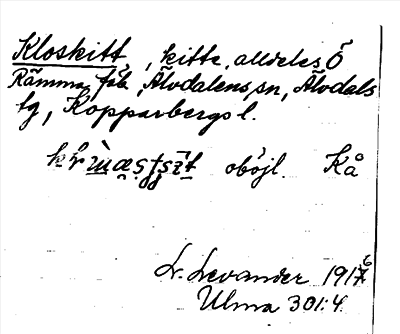 Kloskitt, kitte, alldeles Ö
Rämma, fäb, Älvdalens sn, Älvdals
tg, Kopparbergs l.
oböjl. Kå
L. Levander 1917 6
Ulma 301:4.